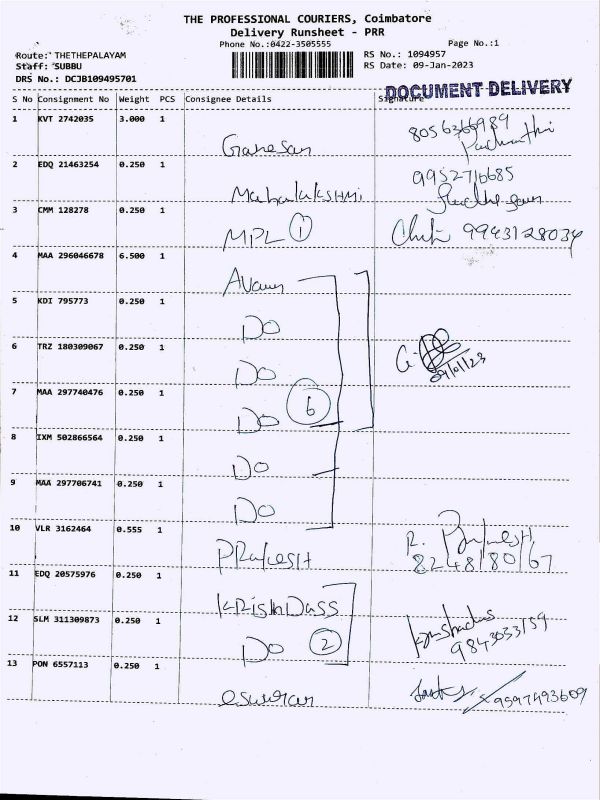 THE PROFESSIONAL COURIERS, Coimbatore
Delivery Runsheet - PRR
Phone No.:0422-3505555
Page No.:1
Route: THETHEPALAYAM
RS No.: 1094957
Staff: SUBBU
RS Date: 09-Jan-2023
DRS No.: DCJB109495701
DOCUMENT DELIVERY
S No Consignment No Weight PCS Consignee Details Signature
1 KVT 2742035 3.000 1
Ganesan 8056366989
2 EDQ 21463254 0.250 1
Mahalakshmi 9952716685
3 CMM 128278 0.250 1
MPL 1 99431 28034
4 MAA 296046678 6.500 1
5 KDI 795773 0.250 1
Do
6 TRZ 180309067 0.250 1
Do 09/01/23
7 MAA 297740476 0.250 1
Do 6
8 IXM 502866564 0.250 1
Do
9 MAA 297706741 0.250 1
Do
10 VLR 3162464 0.555 1
PRakesH R.
8248180167
11 EDQ 20575976 0.250 1
KRisHnDass
12 SLM 311309873 0.250 1
Do 2 9843033159
13 PON 6557113 0.250 1
eswaran 9597493609